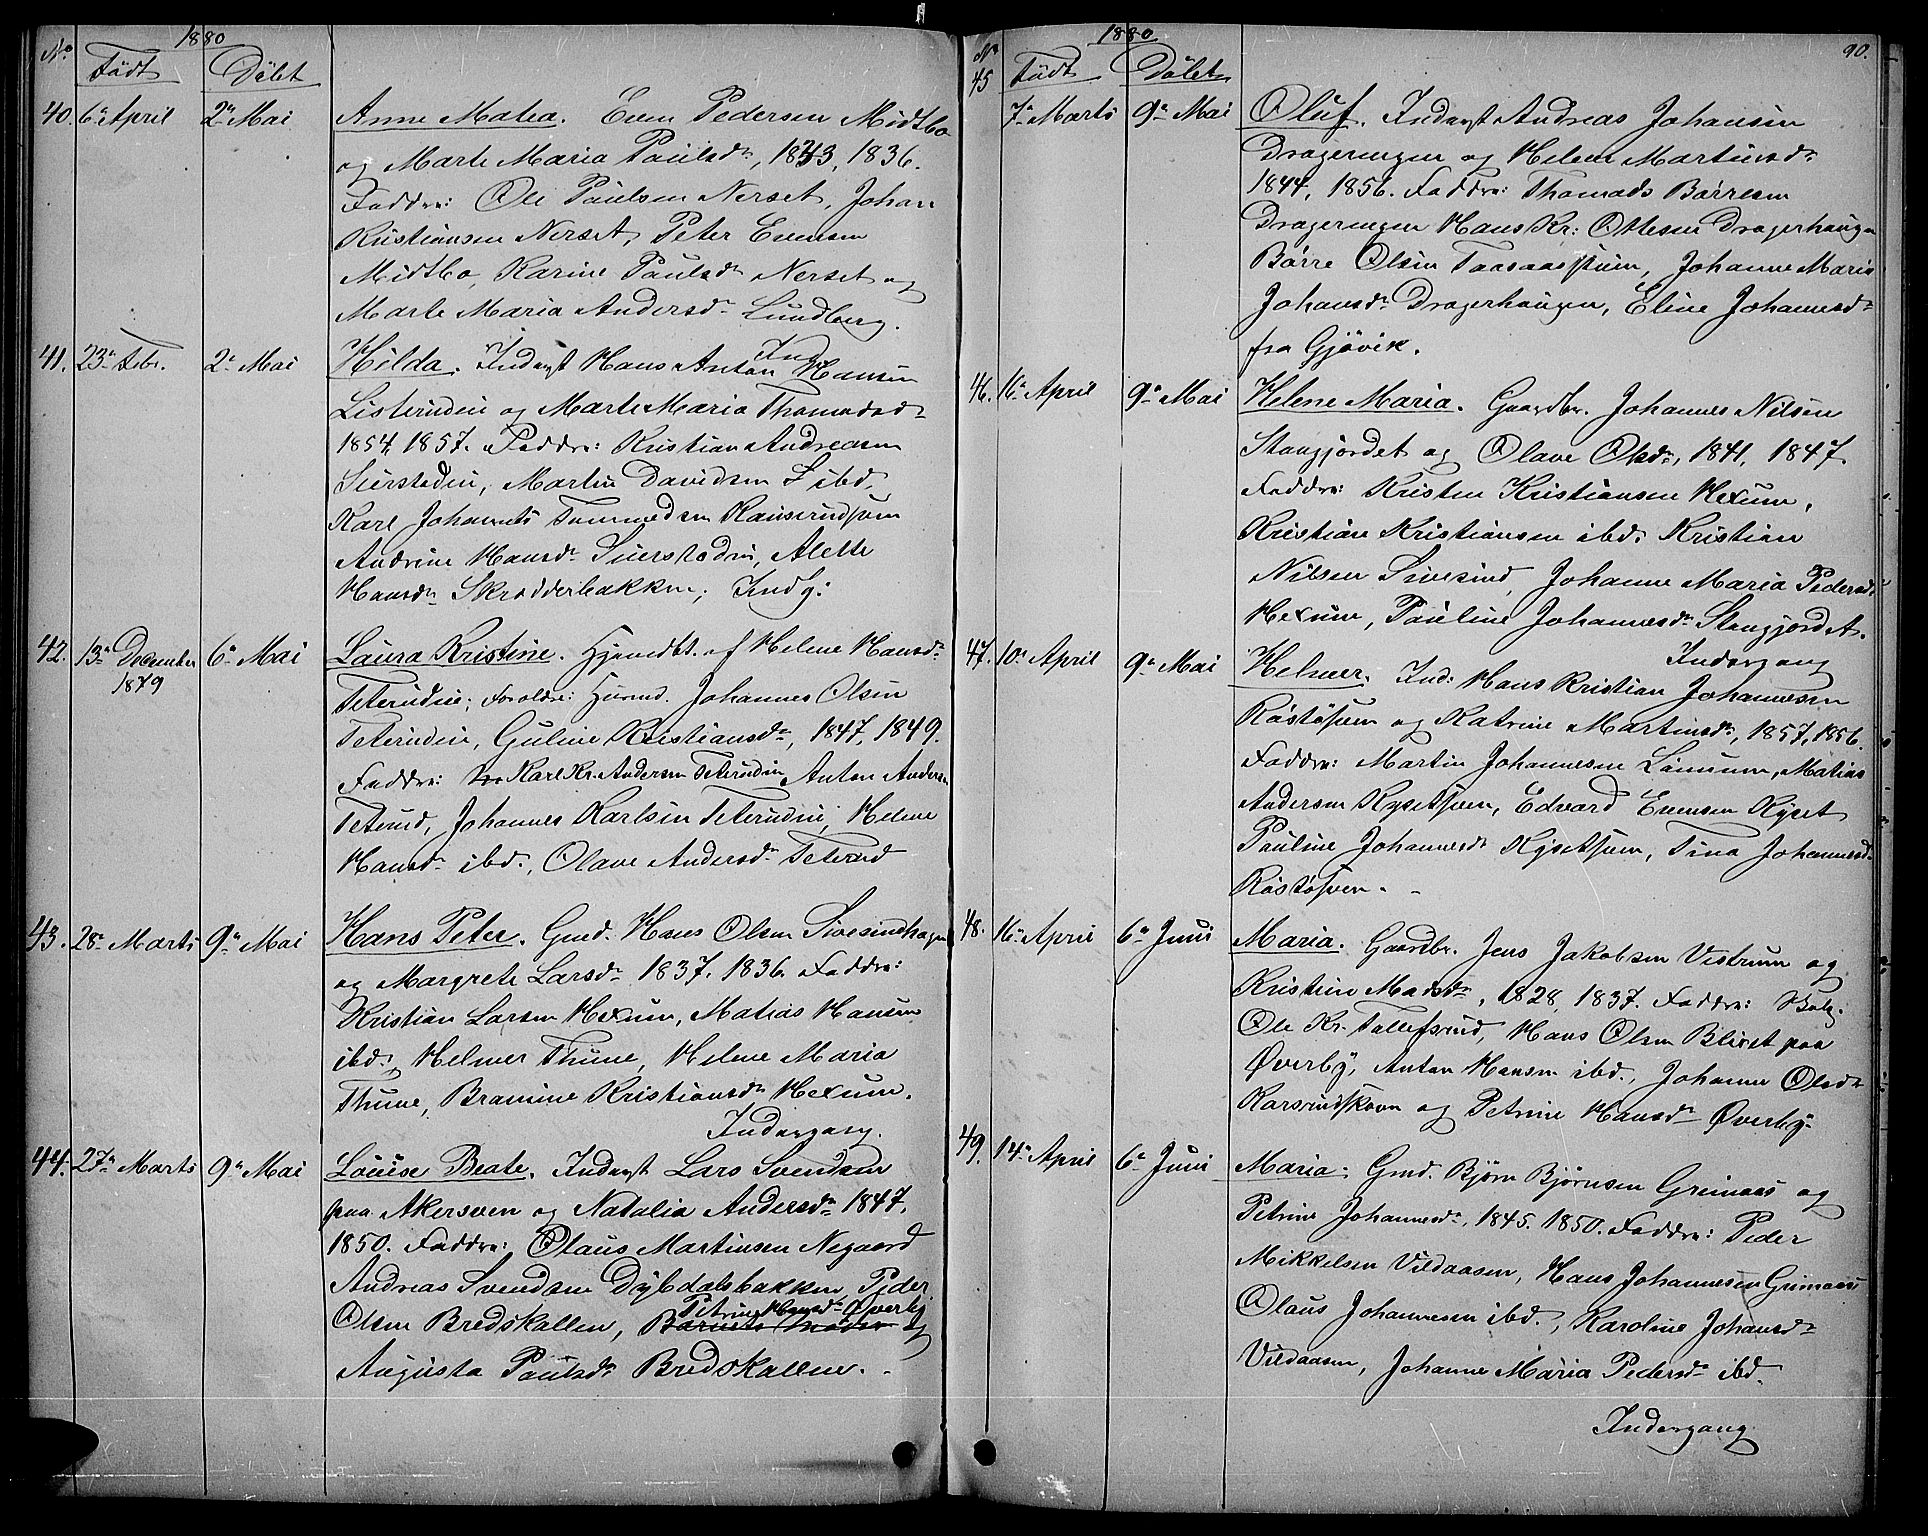 1880
No Födt Döbt
40. 6te April 2de Mai Anne Matea. Even Pedersen Midtbo
og Marte Maria Paulsdr, 1843, 1836.
Faddre: Ole Paulsen Nerset, Johan
Kristiansen Nerset, Peter Evensen
Midtbo, Karine Paulsdr Nerset og
Marte Maria Andersdr Lundberg.
41. 23de Febr. 2de Mai Hilda. Inderst Hans Anton Hansen
Listerudei og Marte Maria Thomasdr
1854, 1857. Faddre: Kristian Andreasen
Martin Davidsen ibd,
Karl Johannes
Andrine Hansdr Alette
Hansdr Skrædderbakken; Indg:
42. 13de December 6te Mai Laura Kristine. Hjemedbt. af Helene Hansdr
1879
Teterudeie; Foroldre: Husmd. Johannes Olsen
Teterudeie, Guline Kristiansdr, 1847, 1849.
Faddre: Karl Kr. Andersen Teterudeie, Anton Andersen
Teterud, Johannes Karlsen Teterudeie, Helene
Hansdr ibd., Olave Andersdr Teterud
43. 28de Marts 9de Mai Hans Peter. Gmd. Hans Olsen Sivesindhagen
og Margrete Larsdr 1837, 1836. Faddre:
Kristian Larsen Hexum, Matias Hansen
ibd., Helmer Thune, Helene Maria
Thune, Bramine Kristiansdr Hexum.
Indergang.
44. 27de Marts 9de Mai Louise Beate. Inderst Lars Svendsen
paa Akersven og Natalia Andersdr 1847,
1850. Faddre: Olaus Martinsen Negaard
Andreas Svendsen Dybdalsbakken, Peder
Petrine Hansdr Øverby
Olsen Bredskallen, Barnets Moder og
Augusta Paulsdr Bredskallen.
1880 90.
No Födt Döbt
45 7de Marts 9de Mai Oluf. Inderst Andreas Johansen
Drageringen og Helene Martinsdr
1844, 1856. Faddre: Thomas Börresen
Drageringen Hans Kr: Ottesen Dragerhaugen
Börre Olsen Johanne Maria
Johansdr Dragerhaugen, Eline Johannesdr
fra Gjövik.
46. 16de April 9de Mai Helene Maria. Gaardbr. Johannes Nilsen
Stangjordet og Olave Olsdr, 1841, 1847.
Faddre: Kristen Kristiansen Hexum,
Kristian Kristiansen ibd. Kristian
Nilsen Sivesind, Johanne Maria Pedersdr
Hexum, Pauline Johannesdr Stangjordet.
Indergang
47. 10de April 9de Mai Helmer. Ind: Hans Kristian Johannesen
Röstösven og Katrine Martinsdr, 1857, 1856.
Faddre: Martin Johannesen Matias
Andersen Kysetsven, Edvard Evensen Kyset
Pauline Johannesdr Kysetsven, Tina Johannesdr
Röstösven.
48. 16de April 6te Juni Maria. Gaardbr. Jens Jakobsen Vestrum og
Kristine Madsdr, 1828, 1837. Faddre:
Ole Kr. Tollefsrud, Hans Olsen Blivet paa
Øverby, Anton Hansen ibd., Johanne Olsdr
Karsrudskoven og Petrine Hansdr Øverby.
49. 14de April 6te Juni Maria. Gmd. Björn Björnsen Greinaas og
Petrine Johannesdr, 1845. 1850. Faddre: Peder
Mikkelsen Vildaasen, Hans Johannesen Grinaas
Olaus Johannesen ibd., Karoline Johansdr
Vildaasen, Johanne Maria Pedersdr ibd.
Indergang